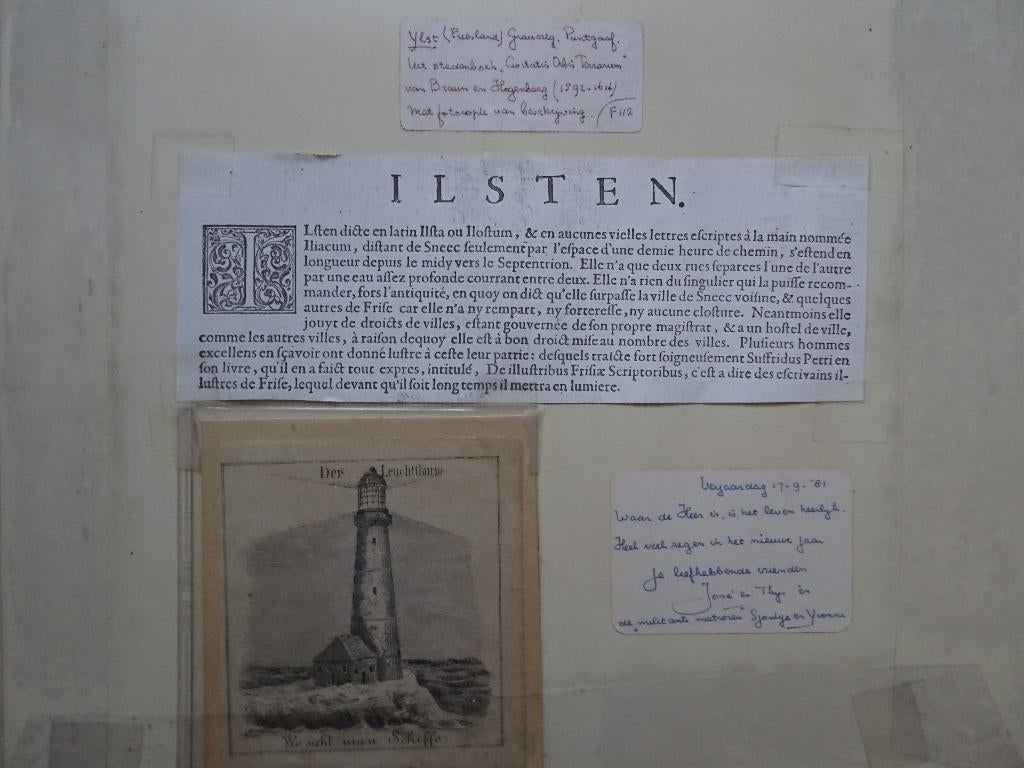 Ylst (Friesland) Gravureg. Puntgaaf.
Uit stedenboek "Civitatis Orbis Terrarum"
van Braun en Hogenberg (1592-1616)
Met fotocopie van beschrijving. F112
ILSTEN.
ILsten dicte en latin Ilsta ou Ilostum, & en aucunes vielles lettres escriptes à la main nommée
Iliacum, distant de Sneec seulement par l'espace d'une demie heure de chemin, s'estend en
longueur depuis le midy vers le Septentrion. Elle n'a que deux rues separees l'une de l'autre
par une eau assez profonde courrant entre deux. Elle n'a rien du singulier qui la puisse recom-
mander, fors l'antiquité, en quoy on dict qu'elle surpasse la ville de Sneec voisine, & quelques
autres de Frise car elle n'a ny rempart, ny forteresse, ny aucune closture. Neantmoins elle
jouyt de droicts de villes, estant gouvernée de son propre magistrat, & a un hostel de ville,
comme les autres villes, à raison dequoy elle est à bon droict mise au nombre des villes. Plusieurs hommes
excellens en sçavoir ont donné lustre à ceste leur patrie: desquels traicte fort soigneusement Suffridus Petri en
son livre, qu'il en a faict tout expres, intitulé, De illustribus Frisiæ Scriptoribus, c'est a dire des escrivains il-
lustres de Frise, lequel devant qu'il soit long temps il mettra en lumiere.
Der Leuchtthurm
Wo sicht man Schiffe
Verjaardag 17-9-'81
Waar de Heer is, is het leven heerlijk.
Heel veel zegen in het nieuwe jaar
Je liefhebbende vrienden
José en Thijs en
de "militante matrozen" Sjoukje en Yvonne